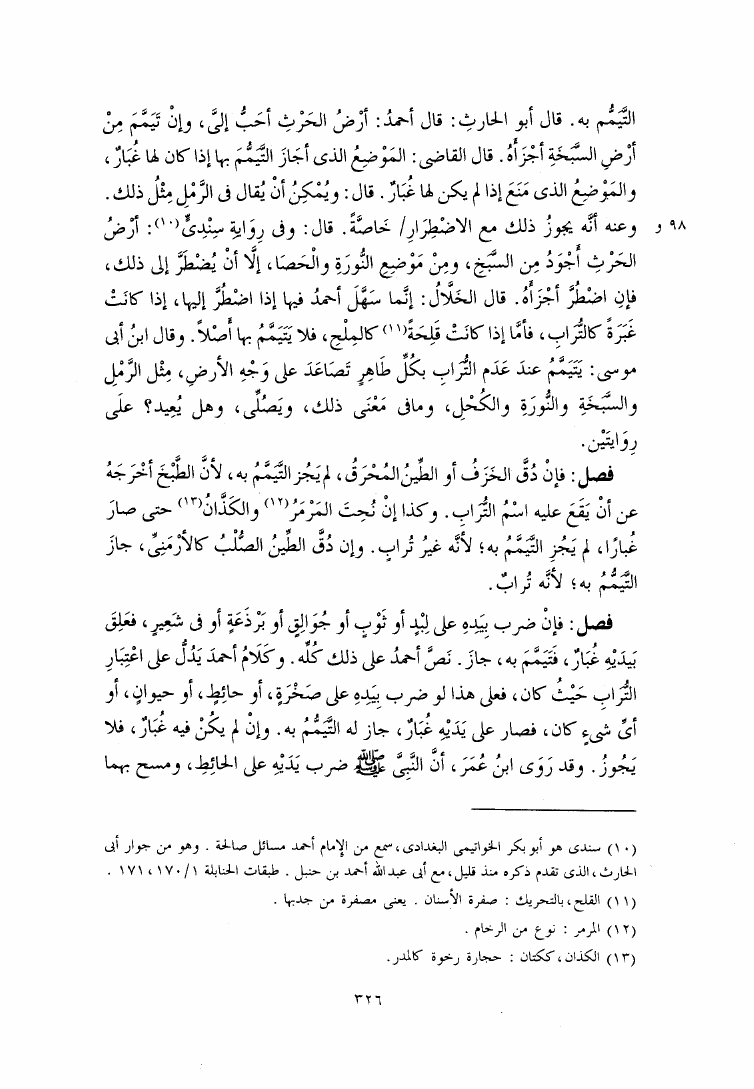 التَّيَمُّم به. قال أبو الحارثِ: قال أحمدُ: أرْضُ الحَرْثِ أحَبُّ إلىَّ، وإنْ تَيَمَّمَ مِنْ
أرْضِ السَّبَخَةِ أجْزَأهُ. قال القاضى: المَوْضِعُ الذى أجَازَ التَّيَمُّمَ بها إذا كان لها غُبَارٌ،
والمَوْضِعُ الذى مَنَعَ إذا لم يكن لها غُبَارٌ. قال: ويُمْكِنُ أنْ يُقال فى الرَّمْلِ مِثْلُ ذلك.
٩٨ و وعنه أنَّه يجوزُ ذلك مع الاضْطِرَارِ/ خَاصَّةً. قال: وفى رِوَايَةِ سِنْدِىٍّ(١٠): أرْضُ
الحَرْثِ أجْوَدُ مِن السَّبَخِ، ومِنْ مَوْضِعِ النُّورَةِ والْحَصَا، إلَّا أنْ يُضْطَرَّ إلى ذلك،
فإن اضْطُرَّ أجْزَأهُ. قال الخَلَّالُ: إنَّما سَهَّلَ أحمدُ فيها إذا اضْطُرَّ إليها، إذا كانَتْ
غَبَرَةً كالتُّرَابِ، فأمَّا إذا كانَتْ قَلِحَةً(١١) كالمِلْحِ، فلا يَتَيَمَّمُ بها أصْلاً. وقال ابنُ أبى
موسى: يَتَيَمَّمُ عندَ عَدَمِ التُّرَابِ بكُلِّ طَاهِرٍ تَصَاعَدَ على وَجْهِ الأرضِ، مِثْلِ الرَّمْلِ
والسَّبَخَةِ والنُّورَةِ والكُحْلِ، ومافى مَعْنَى ذلك، ويَصَلِّى، وهل يُعِيد؟ علَى
رِوَايَتَيْن.
فصل: فإنْ دُقَّ الخَزَفُ أو الطِّينُ المُحْرَقُ، لم يَجُز التَّيَمُّمُ به، لأنَّ الطَّبْخَ أخْرَجَهُ
عن أنْ يَقَعَ عليه اسْمُ التُّرَابِ. وكذا إنْ نُحِتَ المَرْمَرُ(١٢) والكَذَّانُ(١٣) حتى صارَ
غُبارًا، لم يَجُزِ التَّيَمُّمُ به؛ لأنَّه غيرُ تُرابٍ. وإن دُقَّ الطِّينُ الصُّلْبُ كالأرْمَنِىِّ، جازَ
التَّيَمُّمُ به؛ لأنَّه تُرابٌ.
فصل: فإنْ ضرب بِيَدِهِ على لِبْدٍ أو ثَوْبٍ أو جُوَالِقٍ أو بَرْذَعَةٍ أو فى شَعِيرٍ، فعَلِقَ
بيَدَيْهِ غُبَارٌ، فَتَيَمَّمَ به، جازَ. نَصَّ أحمدُ على ذلك كُلِّه. وكَلَامُ أحمدَ يَدُلُّ على اعْتِبَارِ
التُّرَابِ حَيْثُ كان، فعلى هذا لو ضرب بيَدِهِ على صَخْرَةٍ، أو حائِطٍ، أو حيوانٍ، أو
أىِّ شىءٍ كان، فصار على يَدَيْهِ غُبَارٌ، جاز له التَّيَمُّمُ به. وإنْ لم يكُنْ فيه غُبَارٌ، فلا
يَجُوزُ. وقد رَوَى ابنُ عُمَرَ، أنَّ النَّبِىَّ ﷺ ضرب يَدَيْهِ على الحائِطِ، ومسح بهما
(١٠) سندى هو أبو بكر الخواتيمى البغدادى، سمع من الإمام أحمد مسائل صالحة. وهو من جوار أبى
الحارث، الذى تقدم ذكره منذ قليل، مع أبى عبد الله أحمد بن حنبل. طبقات الحنابلة ١/١٧٠، ١٧١.
(١١) القلح، بالتحريك: صفرة الأسنان. يعنى مصفرة من جدبها.
(١٢) المرمر: نوع من الرخام.
(١٣) الكذان، ككتان: حجارة رخوة كالمدر.
٣٢٦